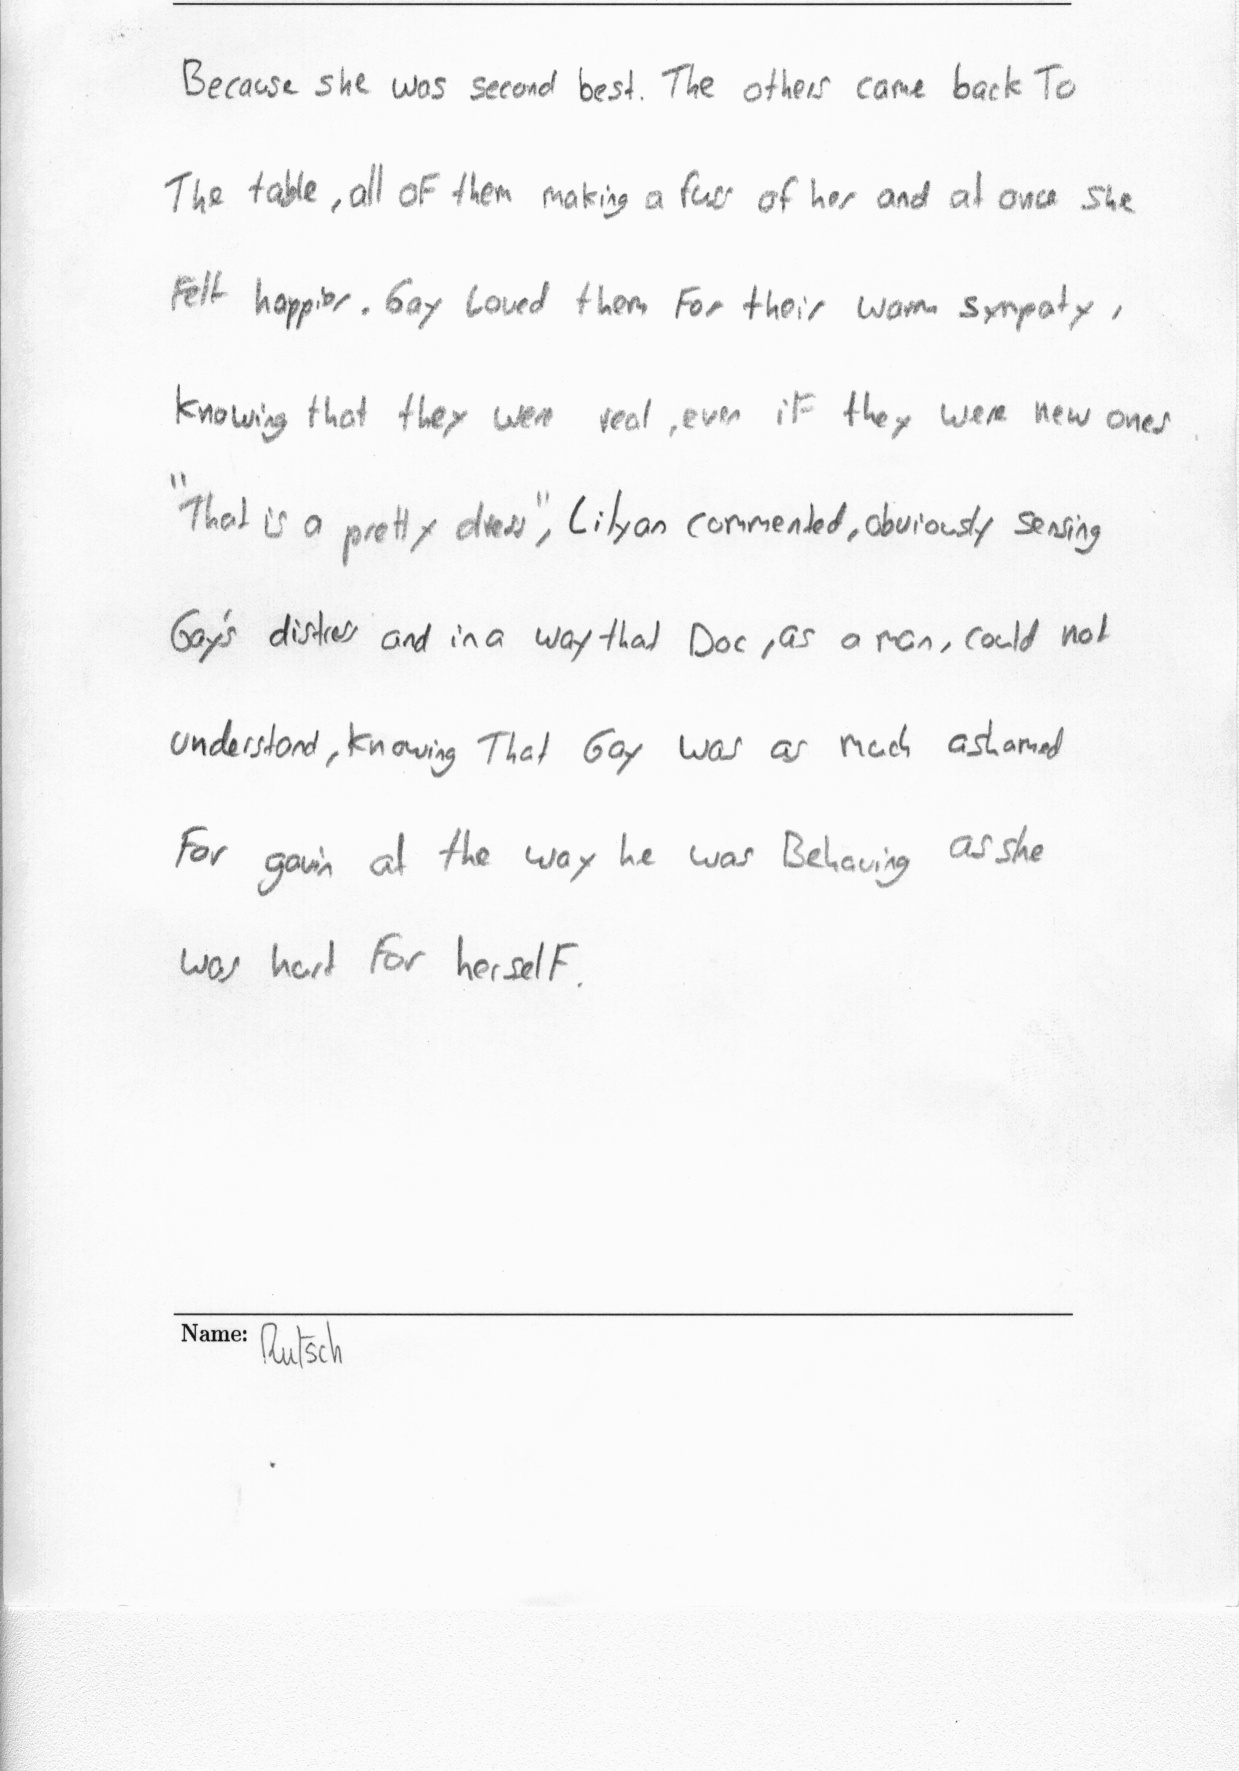 Because she was second best. The others came back To
The table, all oF them making a fuss of her and at once she
Felt happier. Gay Loved them For their warm sympaty,
knowing that they were real, even iF they were new ones
"That is a pretty dress", Lilyan commented, obviously sensing
Gay's distress and in a way that Doc, as a man, could not
understand, knowing That Gay was as much ashamed
For gavin at the way he was Behaving as she
was hart For herselF.
Name: Rutsch